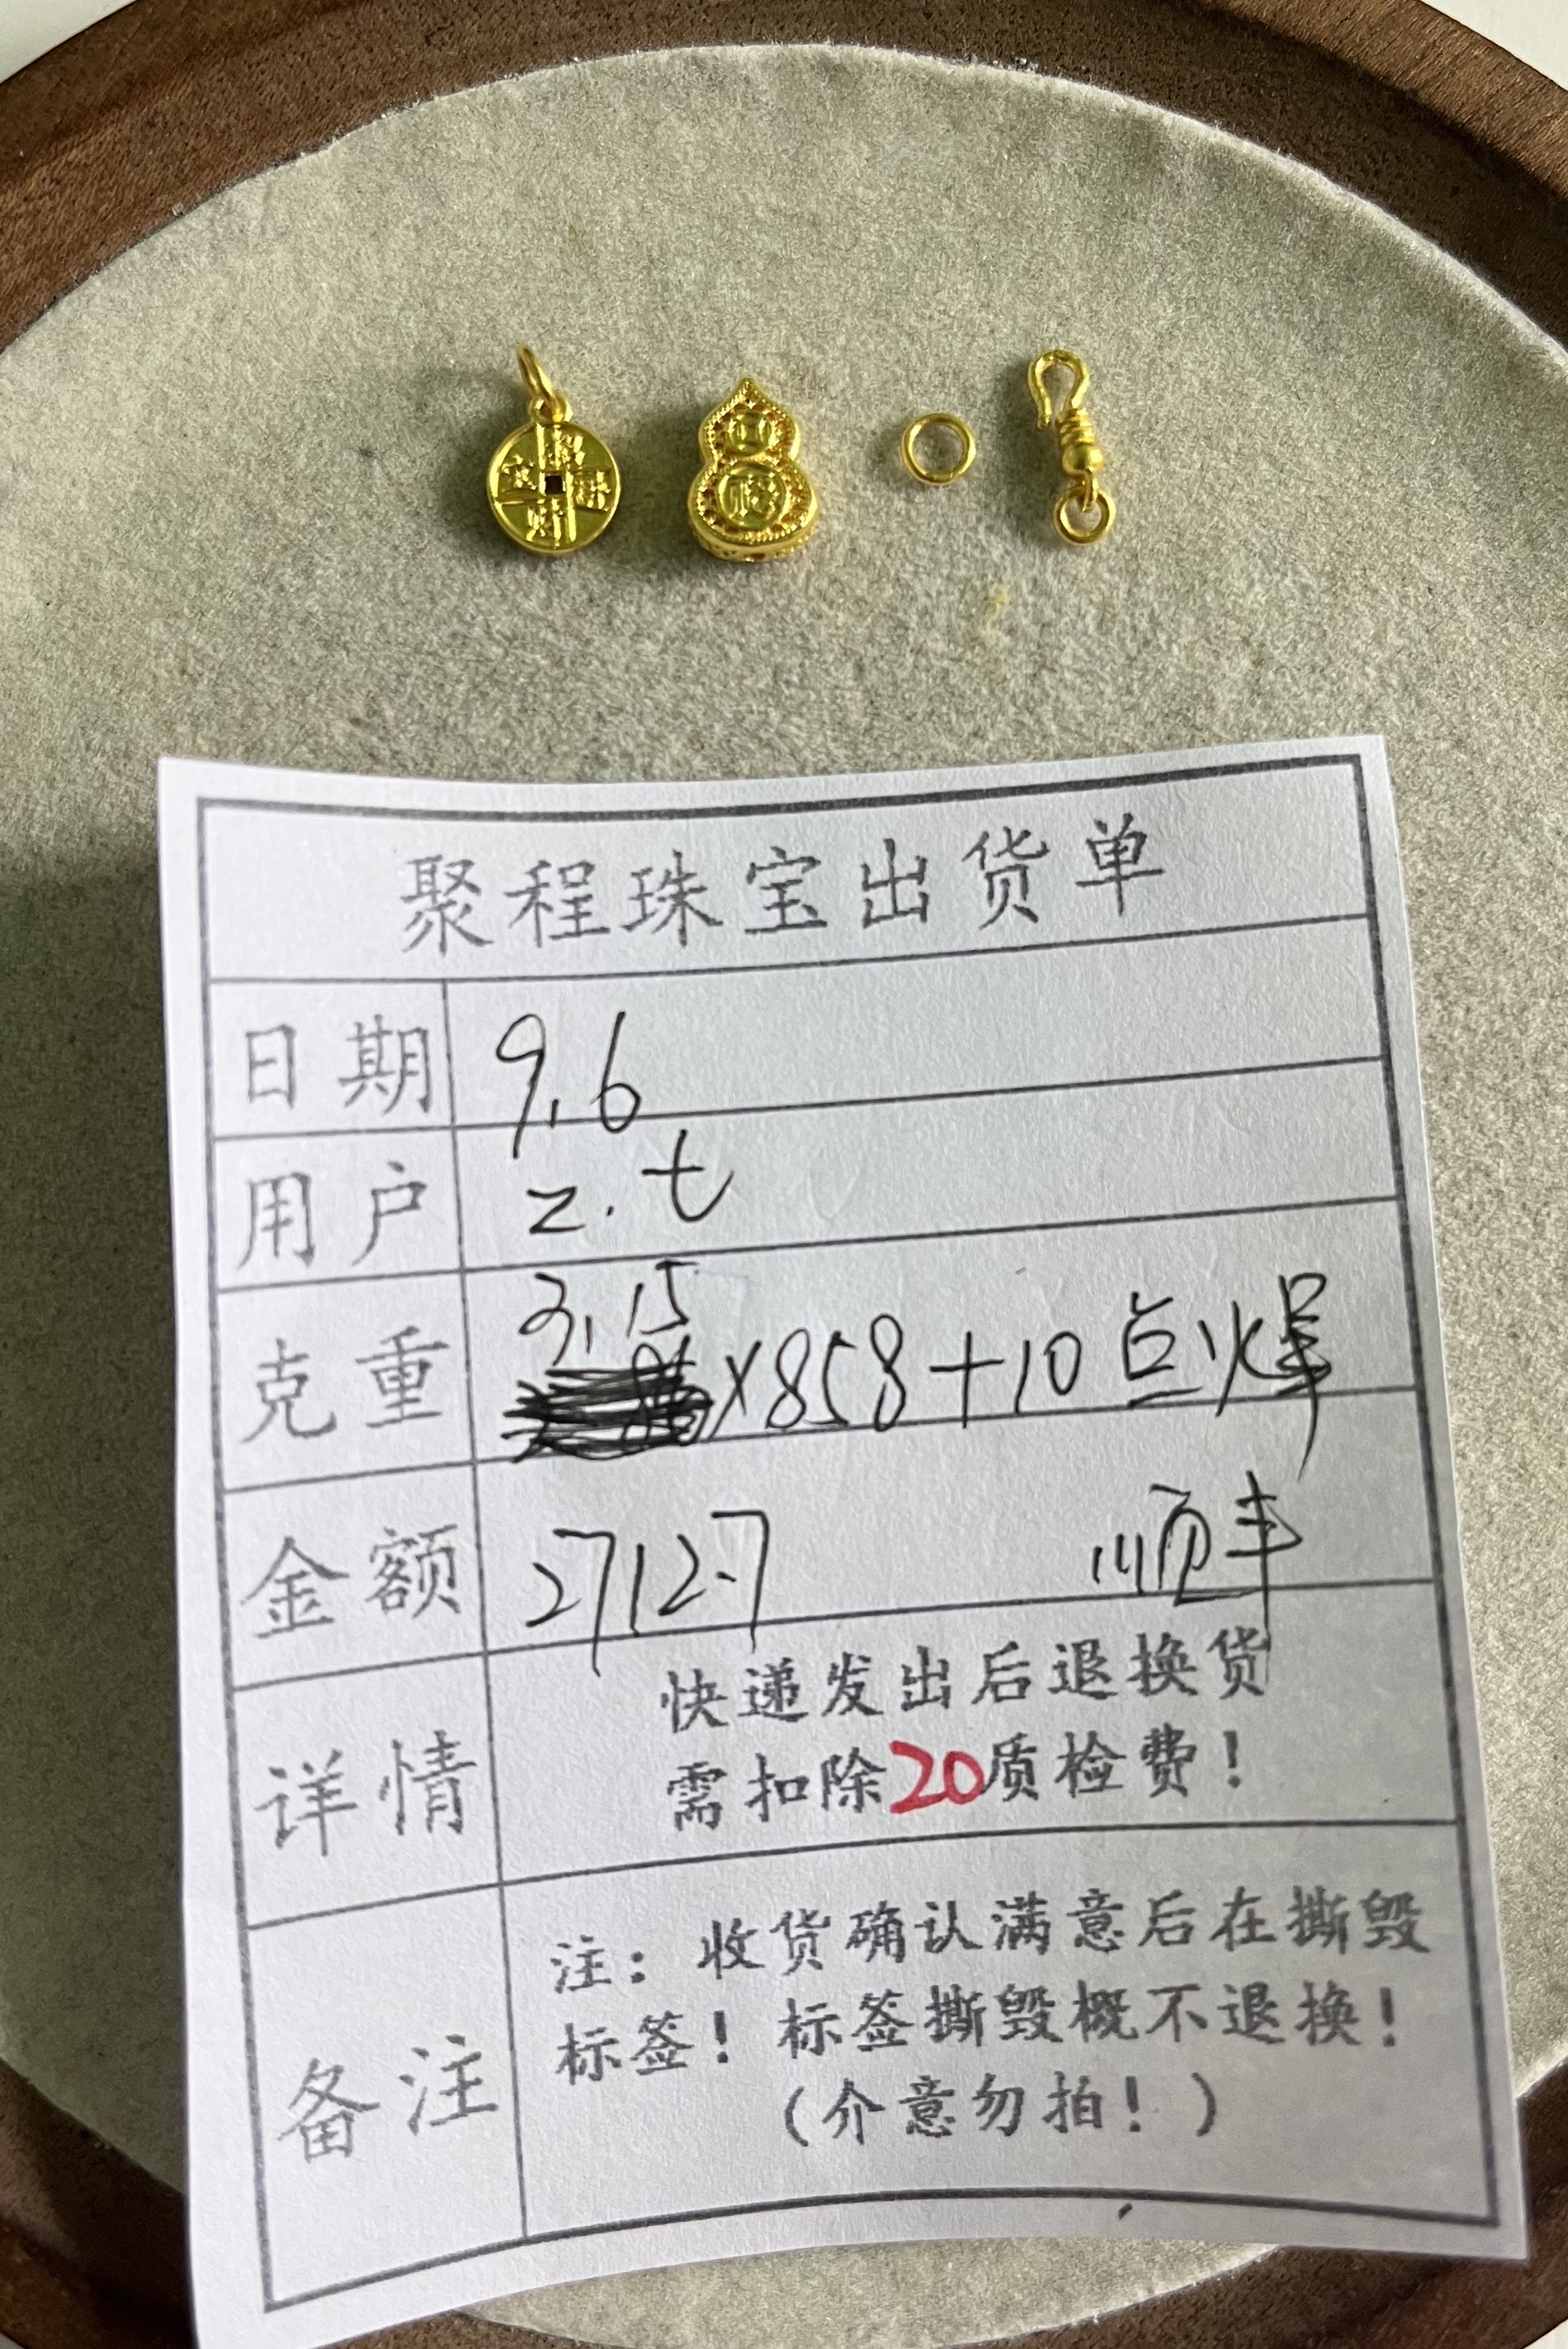 福
聚程珠宝出货单
日期 9.6
用户 z.t
克重 3.15 ×858+10点火焊
金额 2712.7 顺丰
详情 快递发出后退换货
需扣除20质检费！
备注 注：收货确认满意后在撕毁
标签！标签撕毁概不退换！
（介意勿拍！）